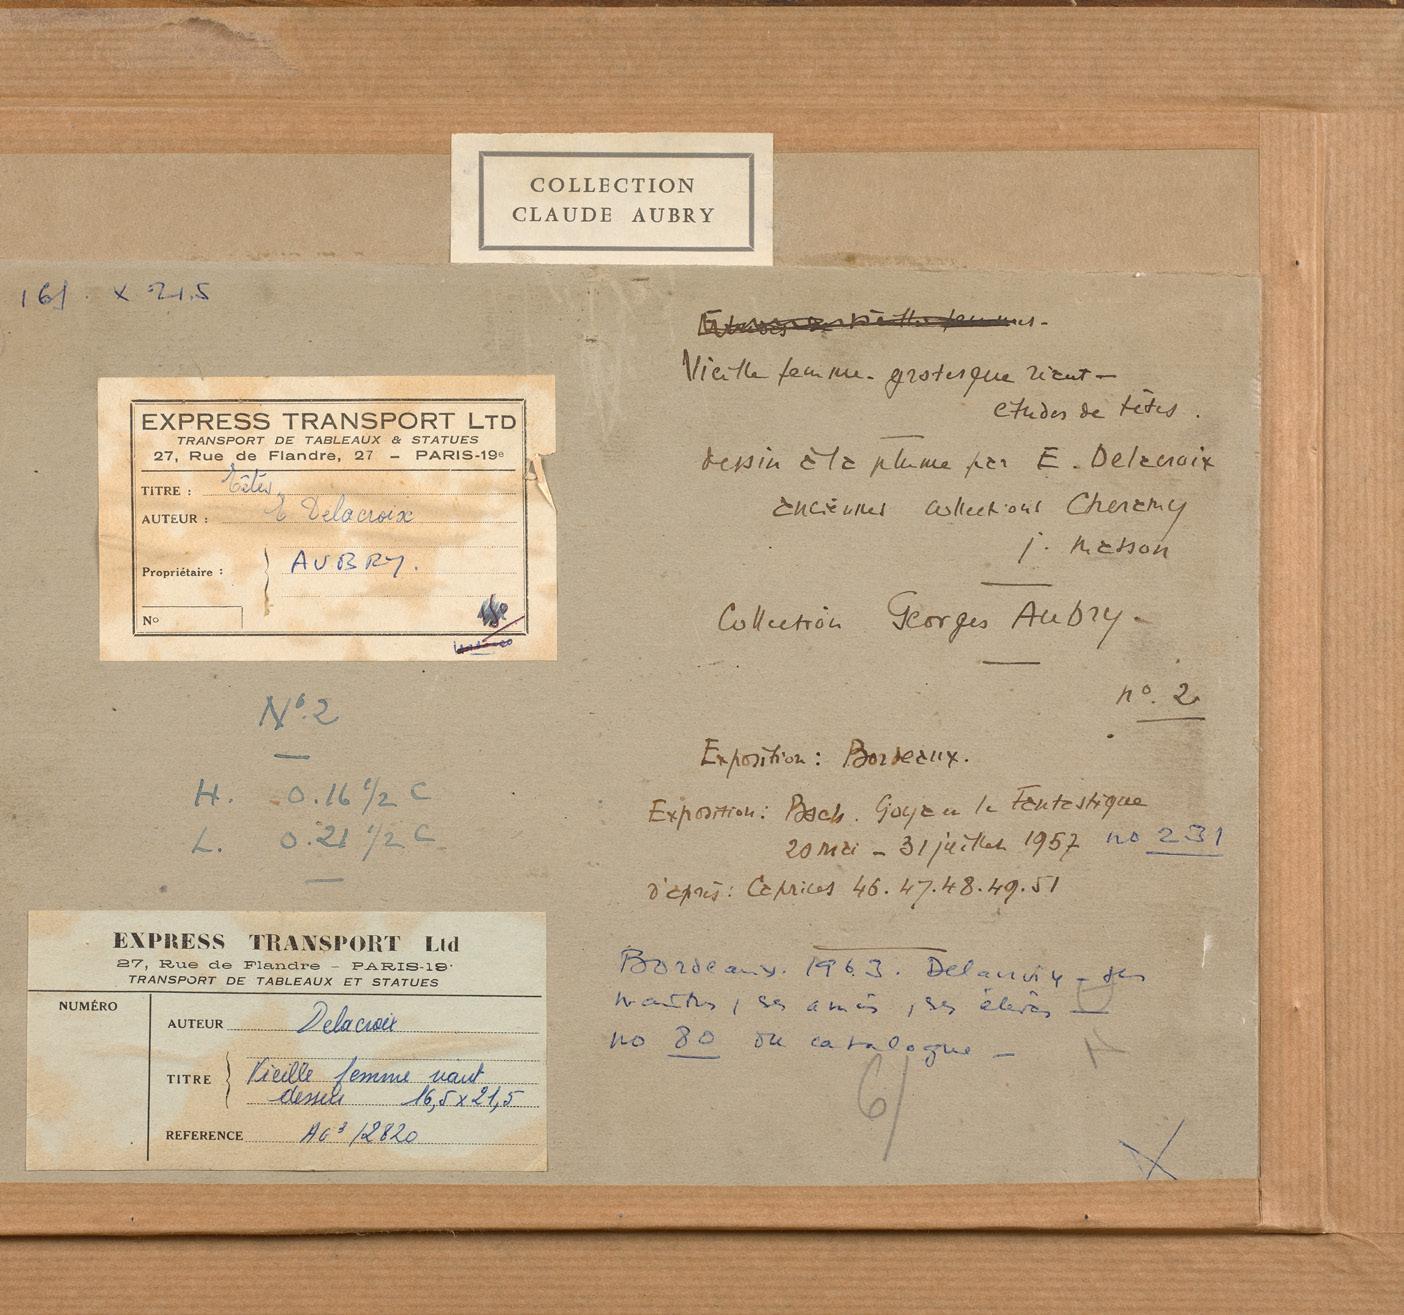 COLLECTION
CLAUDE AUBRY
x 21.5
Vieille femme grotesque riant -
études de têtes.
dessin à la plume par E. Delacroix
anciennes collections Cheramy
j. Masson
Collection Georges Aubry -
n° 2
Exposition : Bordeaux.
Exposition : Bosch. Goya et le Fantastique
20 mai - 31 juillet 1957 no 231
d'après : Caprices 46. 47. 48. 49. 51
Bordeaux. 1963. Delacroix - ses
maîtres, ses amis, ses élèves -
no 80 du catalogue -
6/
EXPRESS TRANSPORT LTD
TRANSPORT DE TABLEAUX & STATUES
27, Rue de Flandre, 27 - PARIS-19e
TITRE : Têtes
AUTEUR : E Delacroix
Propriétaire : AUBRY.
No
N° 2
H. 0.16 1/2 C
L. 0.21 1/2 C
EXPRESS TRANSPORT Ltd
27, Rue de Flandre - PARIS-19e
TRANSPORT DE TABLEAUX ET STATUES
NUMÉRO
AUTEUR Delacroix
TITRE Vieille femme riant
dessin 16,5 x 21,5
REFERENCE /2820